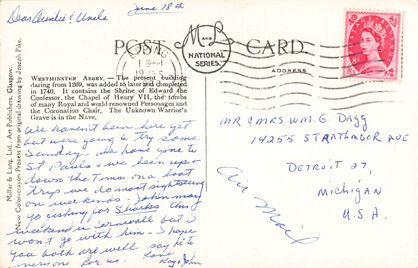 June 18th
Dear Auntie & Uncle
POSTAL CARD
M AND L
NATIONAL SERIES
ADDRESS
WESTMINSTER ABBEY. — The present building
dating from 1269, was added to later and completed
in 1740. It contains the Shrine of Edward the
Confessor, the Chapel of Henry VII, the tombs
of many Royal and world renowned Personages and
the Coronation Chair. The Unknown Warrior's
Grave is in the Nave,
We haven't been here yet
but were going to try some
Sunday. We have gone to
St Pauls & we been up &
down the Thames on a boat
trip we do most sightseeing
on weekends. John may
go fishing for Sharks this
weekend in Cornwall but I
won't go with him. I hope
you both are well say hi to
everyone for us. Love
Kay & John
Millar & Lang, Ltd., Art Publishers, Glasgow.
New Color-crayon Process from original drawing by Joseph Pike.
MR & MRS WM. G DAGG
14255 STRATHMOOR AVE
DETROIT 27,
MICHIGAN
U.S.A.
Air Mail